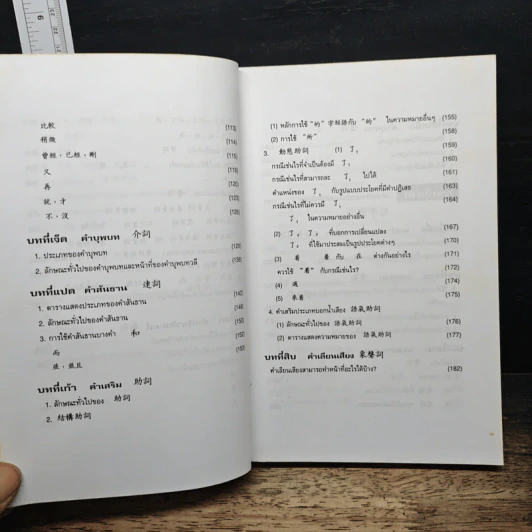 比較 (113)
稍微 (114)
曾經，已經，剛 (115)
又 (116)
再 (120)
就，才 (123)
不，沒 (126)
บทที่เจ็ด คำบุพบท 介詞
1. ประเภทของคำบุพบท (129)
2. ลักษณะทั่วไปของคำบุพบทและหน้าที่ของคำบุพบทวลี (130)
บทที่แปด คำสันธาน 連詞
1. ตารางแสดงประเภทของคำสันธาน (140)
2. ลักษณะทั่วไปของคำสันธาน
3. การใช้คำสันธานบางคำ 和
而
並，並且
บทที่เก้า คำเสริม 助詞
1. ลักษณะทั่วไปของ 助詞
2. 結構助詞
(1) หลักการใช้ "的" 字短語กับ "的" ในความหมายอื่นๆ (155)
(2) การใช้ "所" (158)
3. 動態助詞 (1) 了₁ (159)
กรณีเช่นไรที่จำเป็นต้องมี 了₁ (160)
กรณีเช่นไรที่สามารถละ 了₁ ไปได้ (161)
ตำแหน่งของ 了₁ กับรูปแบบประโยคที่มีคำปฏิเสธ (163)
กรณีเช่นไรที่ไม่ควรมี 了₁ (164)
了₁ ในความหมายอย่างอื่น
(2) 了₂ 了₂ ที่บอกการเปลี่ยนแปลง (167)
了₂ ที่ใช้มาประสมเป็นรูปประโยคต่างๆ (170)
(3) 着 着 กับ 在 ต่างกันอย่างไร (171)
ควรใช้ "着" กับกรณีเช่นไร? (172)
(4) 過 (174)
(5) 來着 (175)
4. คำเสริมประเภทบอกน้ำเสียง 語氣助詞
(1) ลักษณะทั่วไปของ 語氣助詞 (176)
(2) ตารางแสดงความหมายของ 語氣助詞 (177)
บทที่สิบ คำเลียนเสียง 象聲詞
คำเลียนเสียงสามารถทำหน้าที่อะไรได้บ้าง? (182)